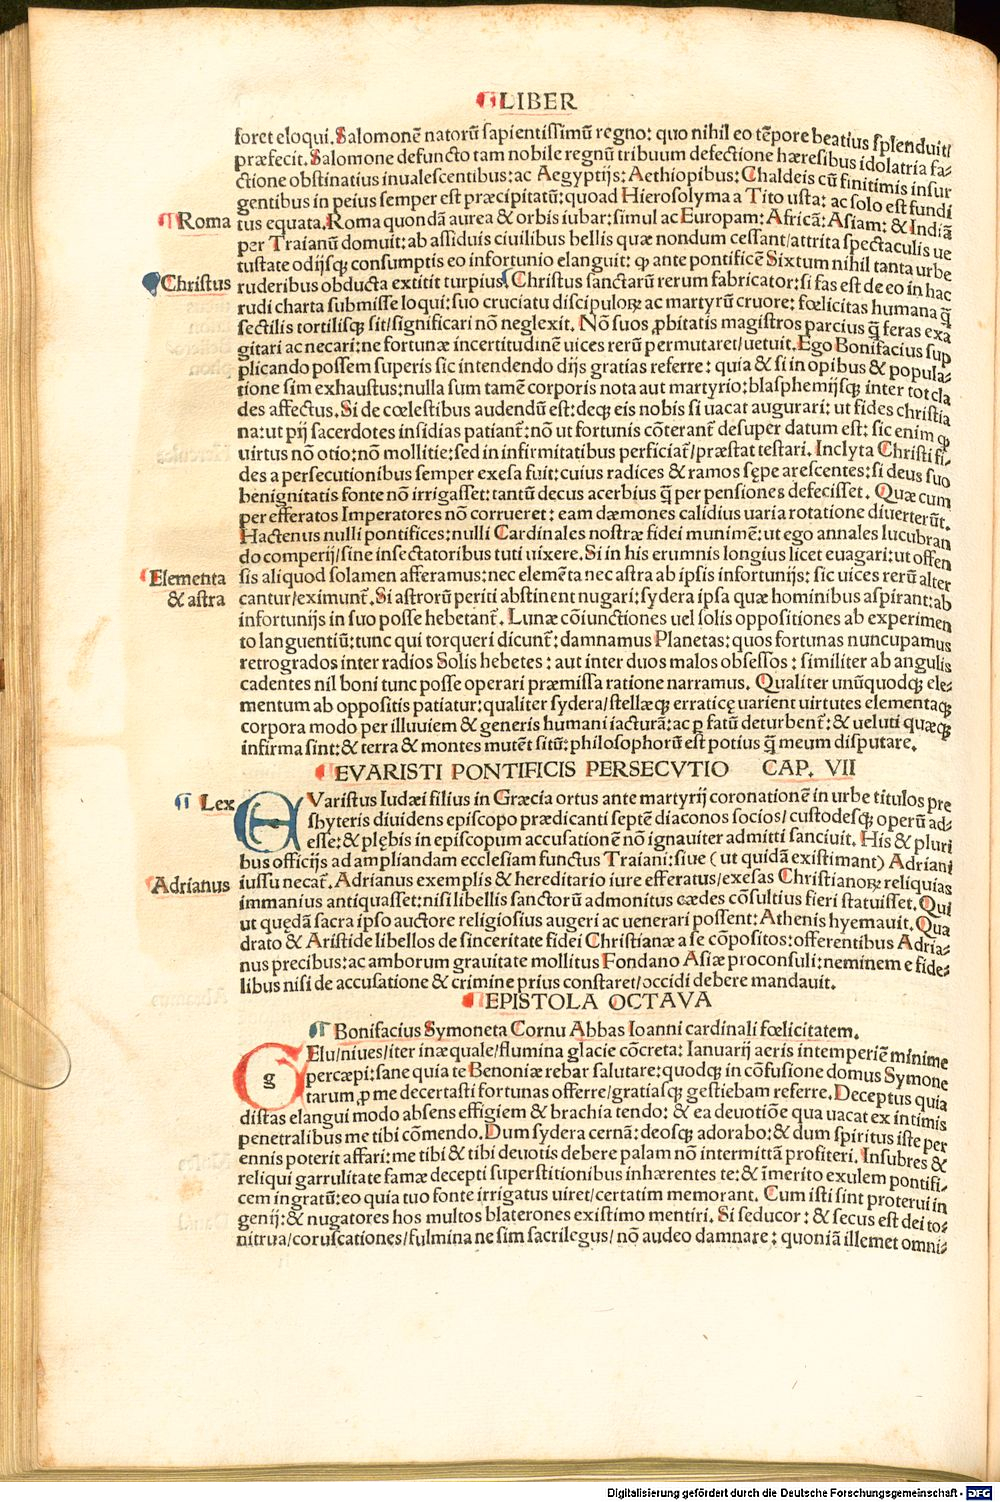 ¶LIBER
foret eloqui. Salomonē natorū sapientissimū regno: quo nihil eo tēpore beatius splenduit/
præfecit. Salomone defuncto tam nobile regnū tribuum defectione hæresibus idolatria fa-
ctione obstinatius inualescentibus: ac Aegyptijs: Aethiopibus: Chaldeis cū finitimis insur
gentibus in peius semper est præcipitatū: quoad Hierosolyma a Tito usta: ac solo est fundi
¶Roma
tus equata. Roma quondā aurea & orbis iubar: simul ac Europam: Africā: Asiam: & Indiā
per Traianū domuit: ab assiduis ciuilibus bellis quæ nondum cessant/attrita spectaculis ue
tustate odijsqꝫ consumptis eo infortunio elanguit: ꝙ ante pontificē Sixtum nihil tanta urbe
Christus
ruderibus obducta extitit turpius. Christus sanctarū rerum fabricator: si fas est de eo in hac
rudi charta submisse loqui: suo cruciatu discipuloꝝ ac martyrū cruore: fœlicitas humana q̄
sectilis tortilisqꝫ sit/significari nō neglexit. Nō suos ꝓbitatis magistros parcius q̄ feras exa
gitari ac necari: ne fortunæ incertitudinē uices rerū permutaret/uetuit. Ego Bonifacius sup
plicando possem superis sic intendendo dijs gratias referre: quia & si in opibus & popula-
tione sim exhaustus: nulla sum tamē corporis nota aut martyrio: blasphemijsqꝫ inter tot cla
des affectus. Si de cœlestibus audendū est: deqꝫ eis nobis si uacat augurari: ut fides christia
na: ut pij sacerdotes insidias patiant̄: nō ut fortunis cōterant̄ desuper datum est: sic enim ꝙ
uirtus nō otio: nō mollitie: sed in infirmitatibus perficiat̄/præstat testari. Inclyta Christi fi-
des a persecutionibus semper exesa fuit: cuius radices & ramos sępe arescentes: si deus suo
benignitatis fonte nō irrigasset: tantū decus acerbius q̄ per pensiones defecisset. Quæ cum
per efferatos Imperatores nō corrueret: eam dæmones calidius uaria rotatione diuerterūt.
Hactenus nulli pontifices: nulli Cardinales nostræ fidei munimē: ut ego annales lucubran
do comperij/sine insectatoribus tuti uixere. Si in his erumnis longius licet euagari: ut offen
¶Elementa
& astra
sis aliquod solamen afferamus: nec elemēta nec astra ab ipsis infortunijs: sic uices rerū alter
cantur/eximunt̄. Si astrorū periti abstinent nugari: sydera ipsa quæ hominibus aspirant: ab
infortunijs in suo posse hebetant̄. Lunæ cōiunctiones uel solis oppositiones ab experimen
to languentiū: tunc qui torqueri dicunt̄: damnamus Planetas: quos fortunas nuncupamus
retrogrados inter radios Solis hebetes: aut inter duos malos obsessos: similiter ab angulis
cadentes nil boni tunc posse operari præmissa ratione narramus. Qualiter unūquodqꝫ ele-
mentum ab oppositis patiatur: qualiter sydera/stellæqꝫ erraticę uarient uirtutes elementaqꝫ
corpora modo per illuuiem & generis humani iacturā: ac ꝑ fatū deturbent̄: & ueluti quæqꝫ
infirma sint: & terra & montes mutēt sitū: philosophorū est potius q̄ meum disputare.
¶EVARISTI PONTIFICIS PERSECVTIO CAP. VII
¶ Lex
EVaristus Iudæi filius in Græcia ortus ante martyrij coronationē in urbe titulos pre
sbyteris diuidens episcopo prædicanti septē diaconos socios/custodesqꝫ operū ad-
esse: & plębis in episcopum accusationē nō ignauiter admitti sanciuit. His & pluri
bus officijs ad ampliandam ecclesiam functus Traiani: siue (ut quidā existimant) Adriani
¶Adrianus
iussu necat̄. Adrianus exemplis & hereditario iure efferatus/exesas Christianoꝝ reliquias
immanius antiquasset: nisi libellis sanctorū admonitus cædes cōsultius fieri statuisset. Qui
ut quędā sacra ipso auctore religiosius augeri ac uenerari possent: Athenis hyemauit. Qua
drato & Aristide libellos de sinceritate fidei Christianæ a se cōpositos: offerentibus Adria-
nus precibus: ac amborum grauitate mollitus Fondano Asiæ proconsuli: neminem e fide-
libus nisi de accusatione & crimine prius constaret/occidi debere mandauit.
¶EPISTOLA OCTAVA
¶ Bonifacius Symoneta Cornu Abbas Ioanni cardinali fœlicitatem.
GElu/niues/iter inæquale/flumina glacie cōcreta: Ianuarij aeris intemperiē minime
percæpi: sane quia te Benoniæ rebar salutare: quodqꝫ in cōfusione domus Symone
tarum ꝓ me decertasti fortunas offerre/gratiasqꝫ gestiebam referre. Deceptus quia
distas elangui modo absens effigiem & brachia tendo: & ea deuotiōe qua uacat ex intimis
penetralibus me tibi cōmendo. Dum sydera cernā: deosqꝫ adorabo: & dum spiritus iste per
ennis poterit affari: me tibi & tibi deuotis debere palam nō intermittā profiteri. Insubres &
reliqui garrulitate famæ decepti superstitionibus inhærentes te: & īmerito exulem pontifi-
cem ingratū: eo quia tuo fonte irrigatus uiret/certatim memorant. Cum isti sint proterui in
genij: & nugatores hos multos blaterones existimo mentiri. Si seducor: & secus est dei to-
nitrua/coruscationes/fulmina ne sim sacrilegus/nō audeo damnare: quoniā illemet omni-
Digitalisierung gefördert durch die Deutsche Forschungsgemeinschaft - DFG